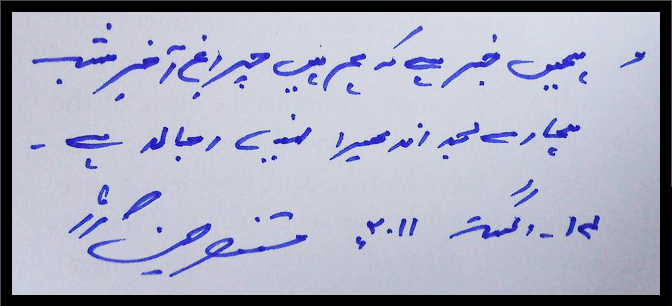 ہمیں خبر ہے کہ ہم ہیں چراغِ آخرِ شب
ہمارے بعد اندھیرا نہیں اجالا ہے ۔
۱۴ ۔ اگست ۲۰۱۱ء مستنصر حسین تارڑ